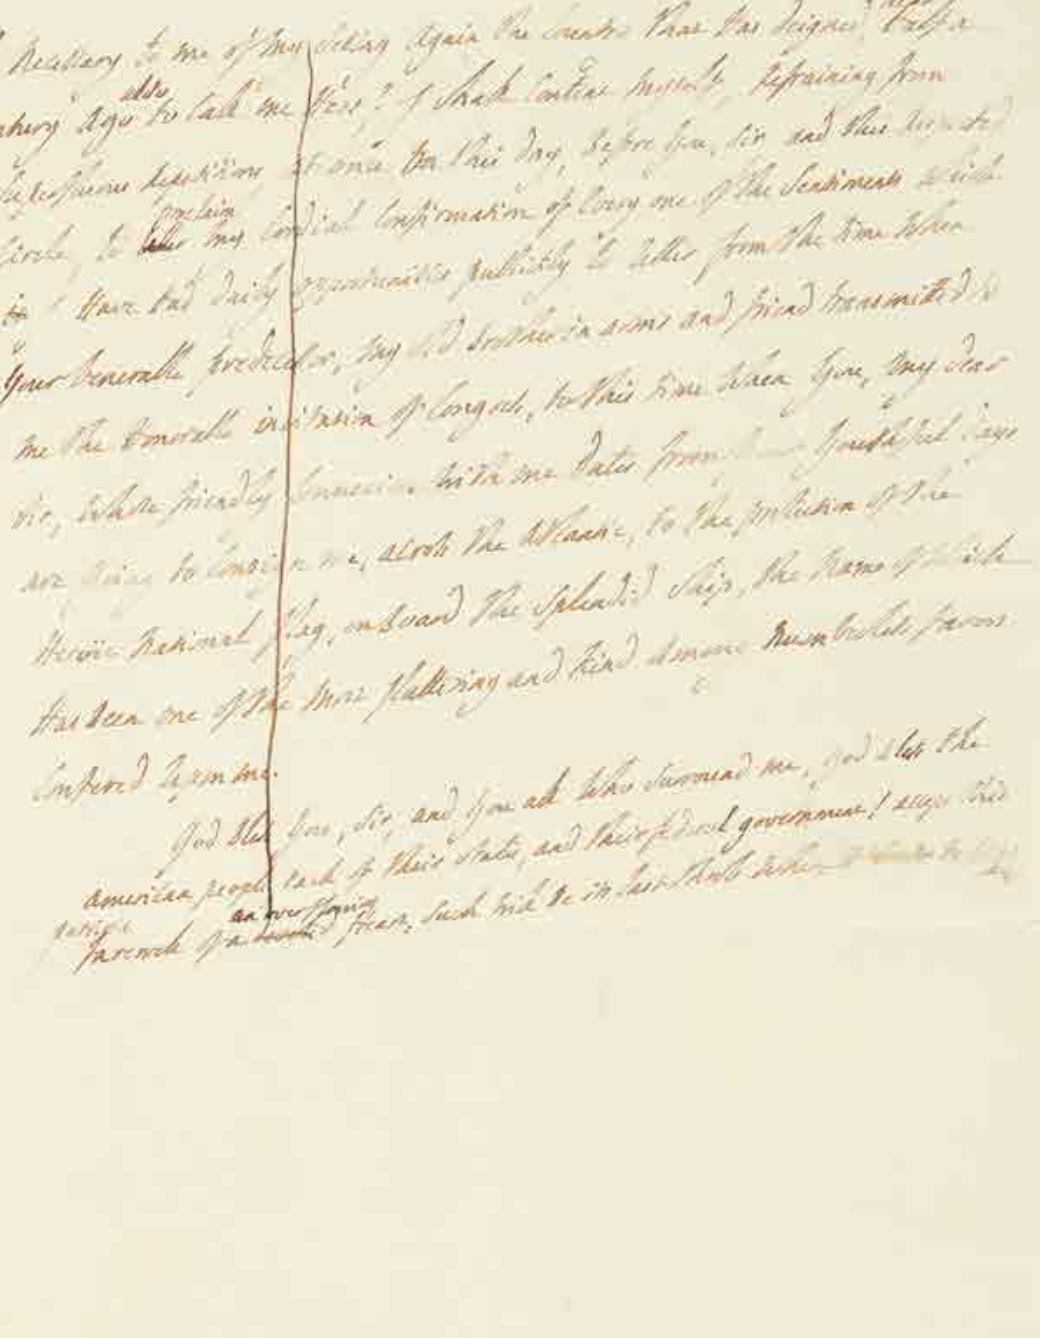 necessary to me of my seeing again the country that has deigned, near half a
century ago to call me hers? I shall content myself, refraining from
also
superfluous repetitions, at once, on this day, before you, sir and this respected
circle, to my cordial confirmation of every one of the sentiments which
proclaim
I have had daily opportunities publickly to utter from the time when
your venerable predecessor, my old brother in arms and friend transmitted to
me the honorable invitation of Congress, to this time when you, my dear
sir, whose friendly connection with me dates from youthful days
are going to consign me, across the Atlantic, to the protection of the
heroic national flag, on board the splendid ship, the name of which
has been one of the most flattering and kind among numberless favors
confered upon me.
God bless you, sir, and you all who surround me, god bless the
american people each of their states, and their federal government! accept this
patriotic
farewell of an overflowing heart, such will be its last throb when